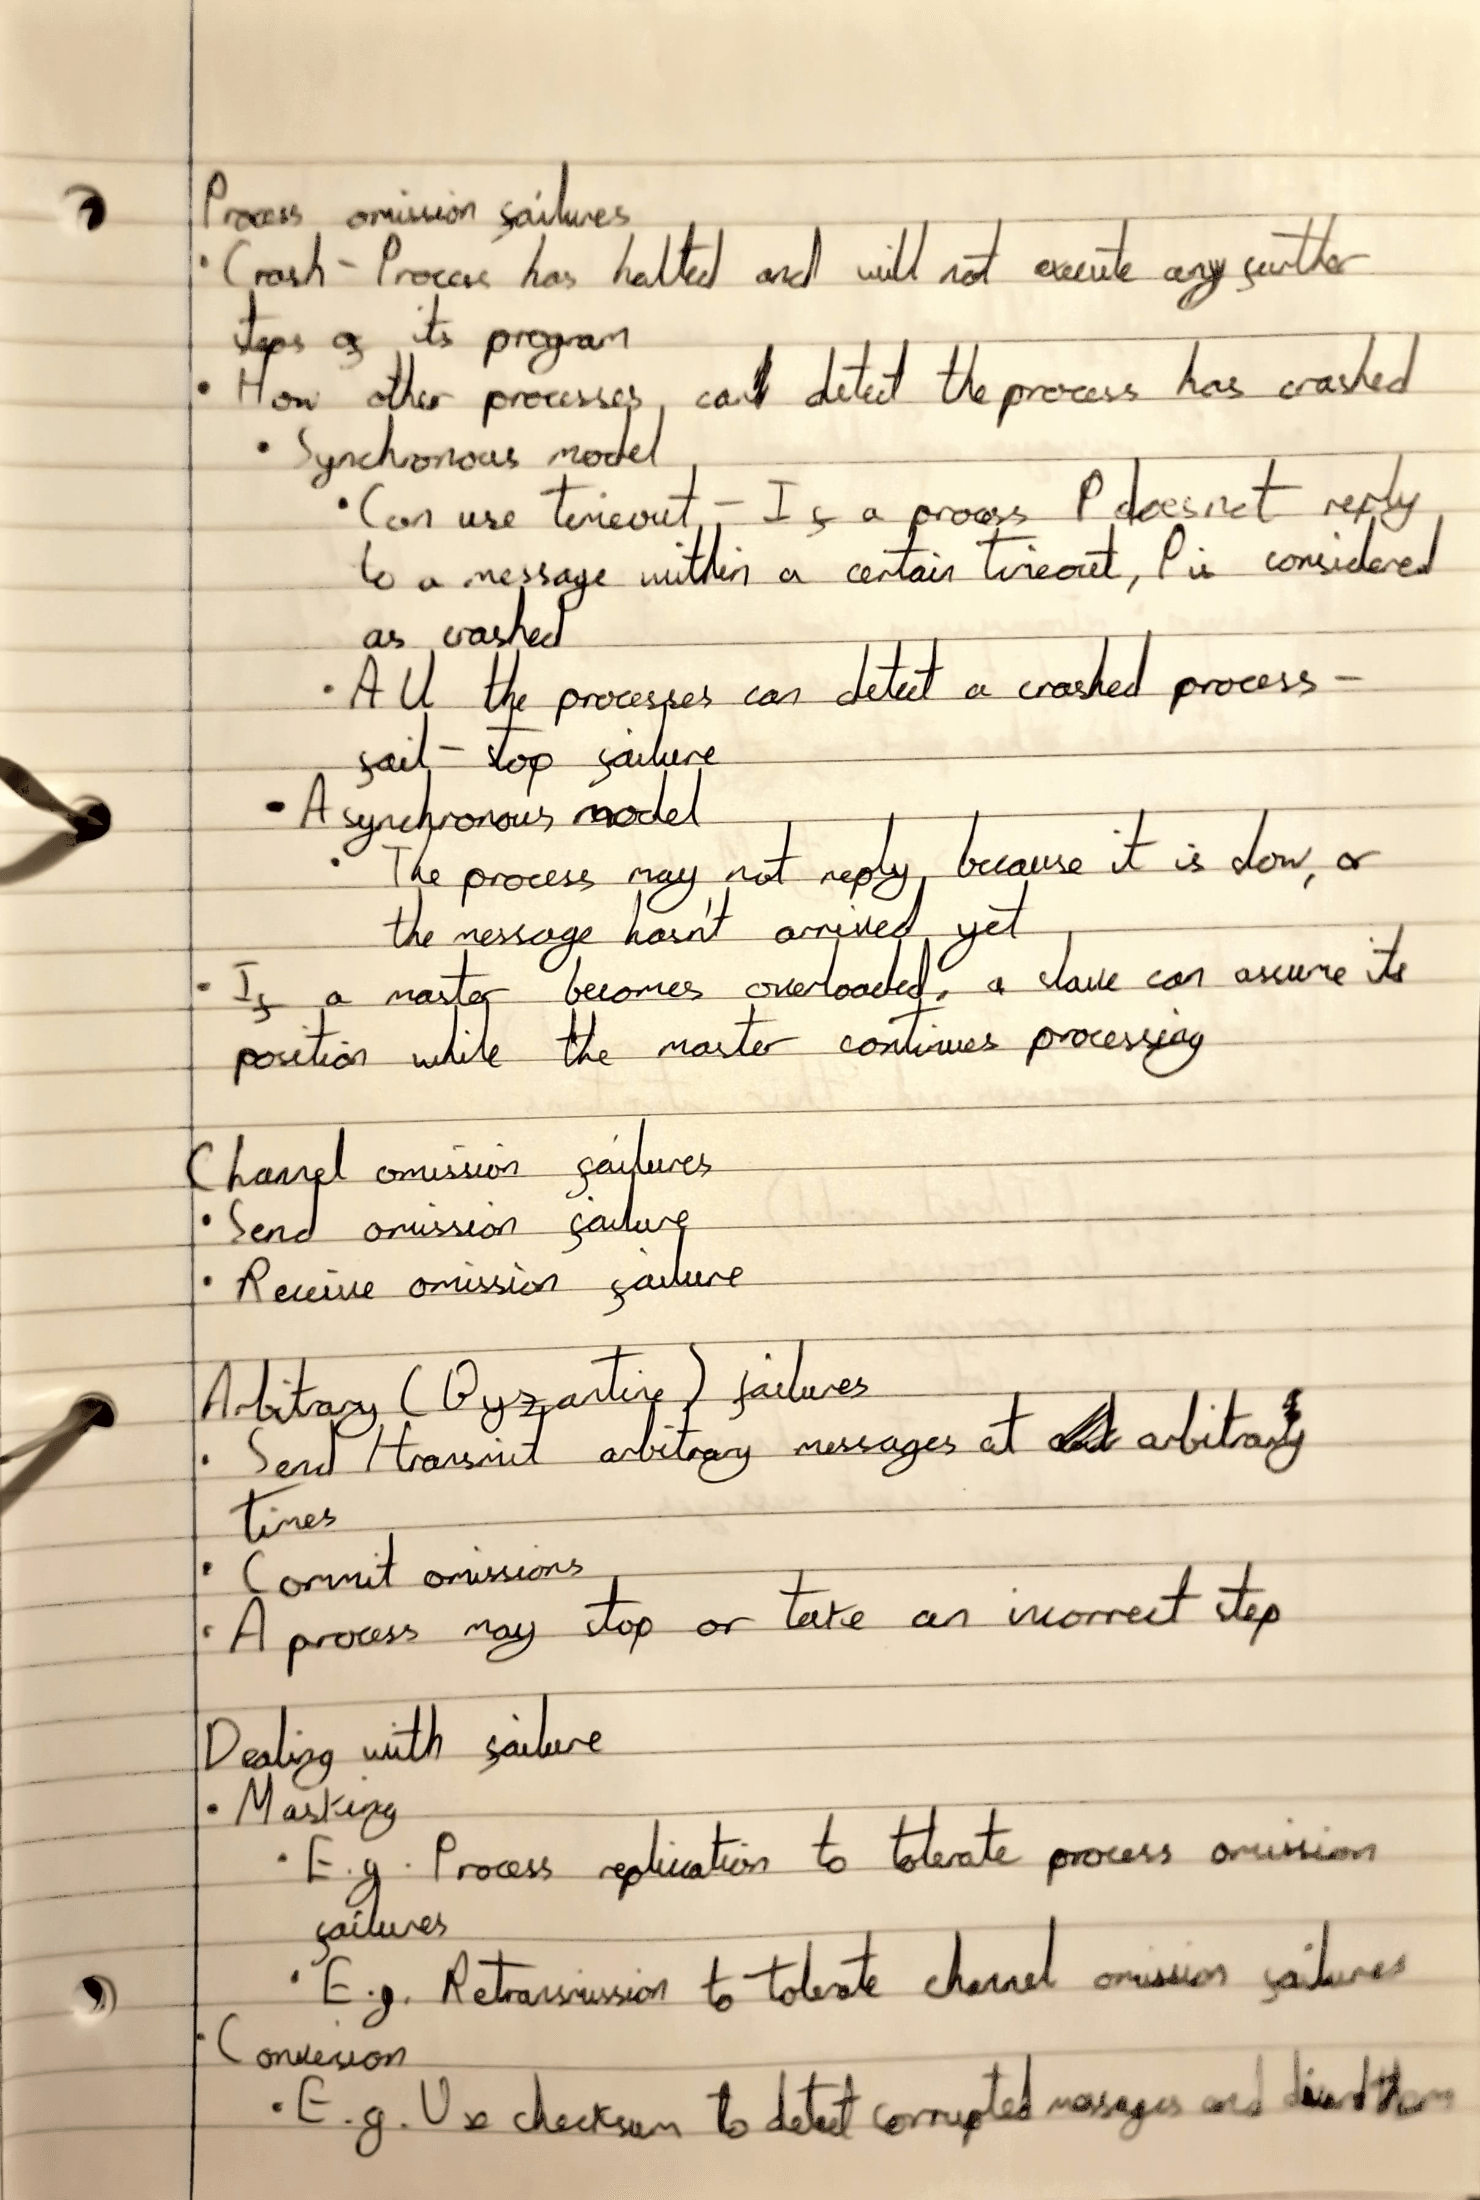 Process omission failures
• Crash - Process has halted and will not execute any further
steps of its program
• How other processes can detect the process has crashed
• Synchronous model
• Can use timeout - If a process P does not reply
to a message within a certain timeout, P is considered
as crashed
• All the processes can detect a crashed process -
fail-stop failure
• Asynchronous model
• The process may not reply because it is slow, or
the message hasn't arrived yet
• If a master becomes overloaded, a slave can assume its
position while the master continues processing
Channel omission failures
• Send omission failure
• Receive omission failure
Arbitrary (Byzantine) failures
• Send/transmit arbitrary messages at arbitrary
times
• Commit omissions
• A process may stop or take an incorrect step
Dealing with failure
• Masking
• E.g. Process replication to tolerate process omission
failures
• E.g. Retransmission to tolerate channel omission failures
• Conversion
• E.g. Use checksum to detect corrupted messages and discard them